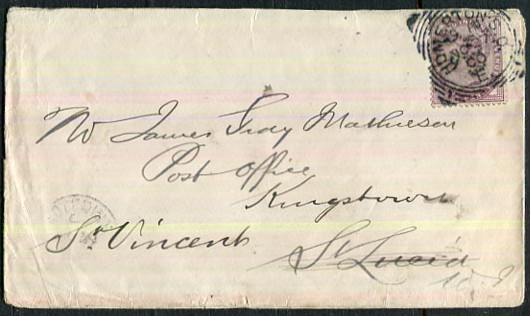 HOMERTON.S.O.
Mr James Gray Mathieson
Post Office
Kingstown
St Vincent
St Lucia
W. I